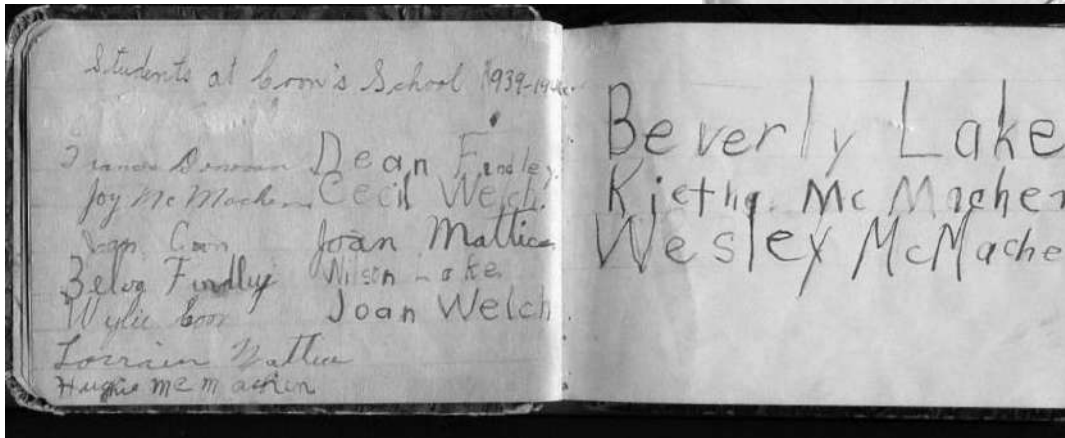 Students at Coon's School 1939-19
Francis Donovan
Joy Mc Machen
Coon
Belva Findley
Wylie Coon
Lorrain Mattice
Hughie Mc Machen
Dean Findley
Cecil Welch
Joan Mattice
Wilson Lake
Joan Welch
Beverly Lake
Kietha Mc Machen
Wesley McMache